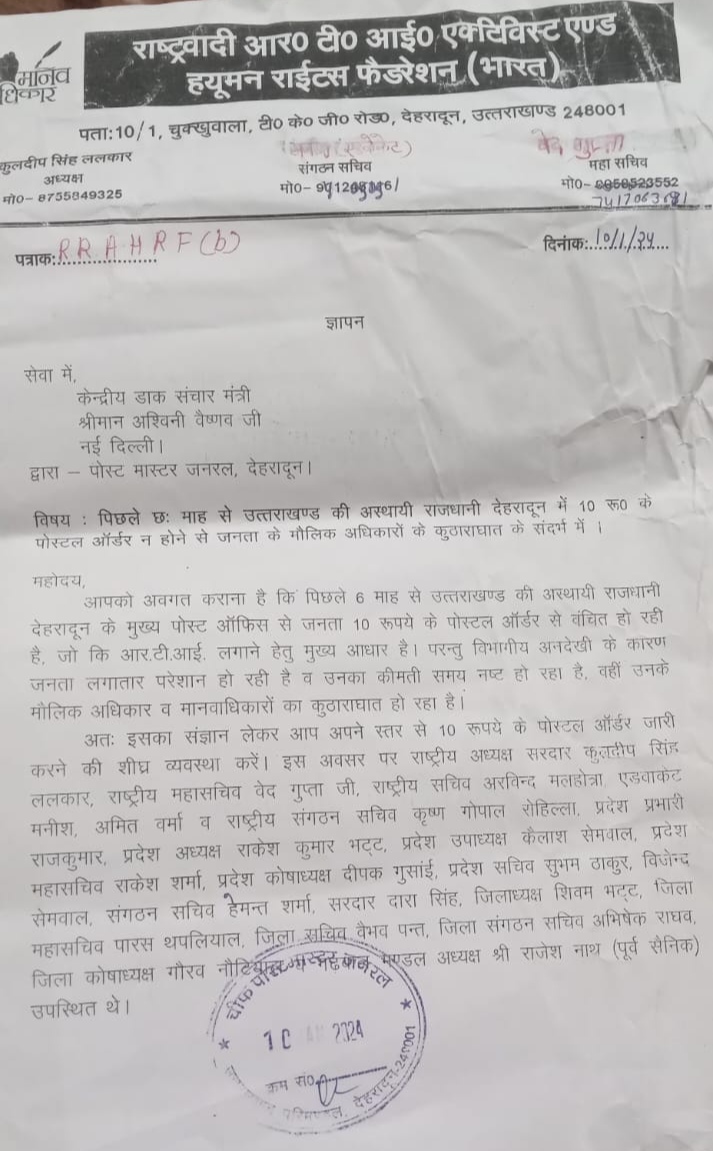 मानव
धिकार
राष्ट्रवादी आर० टी० आई० एक्टिविस्ट एण्ड
हयूमन राईटस फैडरेशन (भारत)
पता:10/1, चुक्खुवाला, टी० के० जी० रोड०, देहरादून, उत्तराखण्ड 248001
कुलदीप सिंह ललकार
अध्यक्ष
मो०- 8755849325
संगठन सचिव
मो०-
वेद गुप्ता
महा सचिव
मो०-
पत्राक: RRAHRF(b)
दिनांक: 10/1/24
ज्ञापन
सेवा में,
केन्द्रीय डाक संचार मंत्री
श्रीमान अश्विनी वैष्णव जी
नई दिल्ली।
द्वारा – पोस्ट मास्टर जनरल, देहरादून।
विषय : पिछले छः माह से उत्तराखण्ड की अस्थायी राजधानी देहरादून में 10 रू० के
पोस्टल ऑर्डर न होने से जनता के मौलिक अधिकारों के कुठाराघात के संदर्भ में ।
महोदय,
आपको अवगत कराना है कि पिछले 6 माह से उत्तराखण्ड की अस्थायी राजधानी
देहरादून के मुख्य पोस्ट ऑफिस से जनता 10 रूपये के पोस्टल ऑर्डर से वंचित हो रही
है, जो कि आर.टी.आई. लगाने हेतु मुख्य आधार है। परन्तु विभागीय अनदेखी के कारण
जनता लगातार परेशान हो रही है व उनका कीमती समय नष्ट हो रहा है, वहीं उनके
मौलिक अधिकार व मानवाधिकारों का कुठाराघात हो रहा है।
अतः इसका संज्ञान लेकर आप अपने स्तर से 10 रूपये के पोस्टल ऑर्डर जारी
करने की शीघ्र व्यवस्था करें। इस अवसर पर राष्ट्रीय अध्यक्ष सरदार कुलदीप सिंह
ललकार, राष्ट्रीय महासचिव वेद गुप्ता जी, राष्ट्रीय सचिव अरविन्द मलहोत्रा, एडवाकेट
मनीश, अमित वर्मा व राष्ट्रीय संगठन सचिव कृष्ण गोपाल रोहिल्ला, प्रदेश प्रभारी
राजकुमार, प्रदेश अध्यक्ष राकेश कुमार भट्ट, प्रदेश उपाध्यक्ष कैलाश सेमवाल, प्रदेश
महासचिव राकेश शर्मा, प्रदेश कोषाध्यक्ष दीपक गुसांई, प्रदेश सचिव सुभम ठाकुर, विजेन्द
सेमवाल, संगठन सचिव हेमन्त शर्मा, सरदार दारा सिंह, जिलाध्यक्ष शिवम भट्ट, जिला
महासचिव पारस थपलियाल, जिला सचिव वैभव पन्त, जिला संगठन सचिव अभिषेक राघव,
जिला कोषाध्यक्ष गौरव मण्डल अध्यक्ष श्री राजेश नाथ (पूर्व सैनिक)
उपस्थित थे।
चीफ पोस्ट मास्टर जनरल
10 2024
क्रम सं०
देहरादून-248001